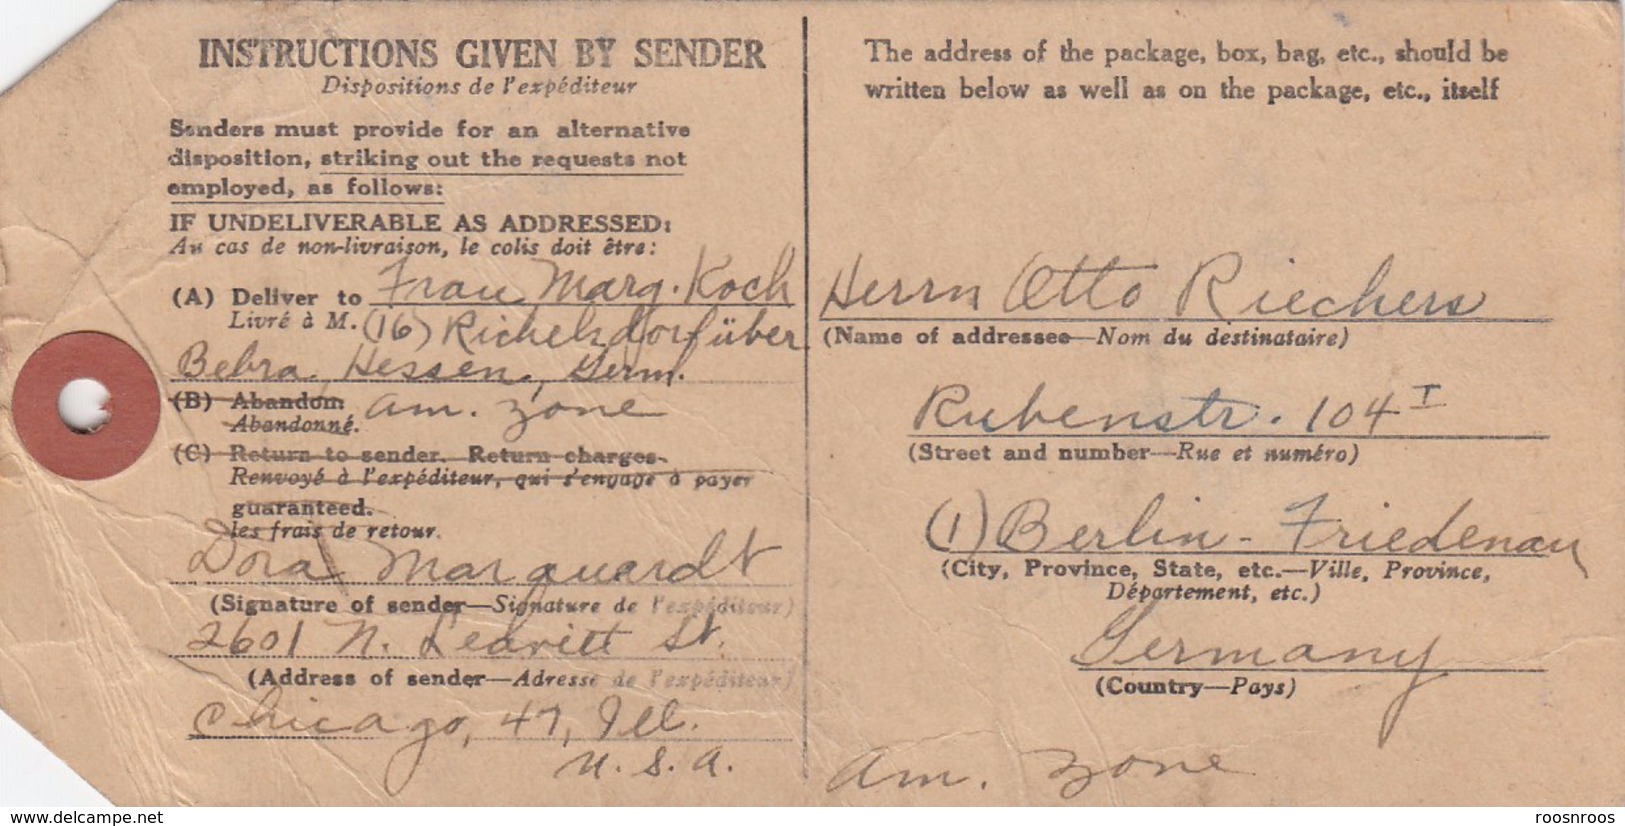 INSTRUCTIONS GIVEN BY SENDER
Dispositions de l'expéditeur
Senders must provide for an alternative
disposition, striking out the requests not
employed, as follows:
IF UNDELIVERABLE AS ADDRESSED:
Au cas de non-livraison, le colis doit être:
(A) Deliver to Frau Marg. Koch
Livré à M. (16) Richelsdorf über
Bebra, Hessen, Germ.
(B) Abandon. am. zone
Abandonné.
(C) Return to sender. Return charges
Renvoyé à l'expéditeur, qui s'engage à payer
guaranteed.
les frais de retour.
Dora Marquardt
(Signature of sender—Signature de l'expéditeur)
2601 N. Leavitt St.
(Address of sender—Adresse de l'expéditeur)
Chicago, 47, Ill.
U.S.A.
The address of the package, box, bag, etc., should be
written below as well as on the package, etc., itself
Herrn Otto Riechers
(Name of addressee—Nom du destinataire)
Rubenstr. 104 I
(Street and number—Rue et numéro)
(1) Berlin-Friedenau
(City, Province, State, etc.—Ville, Province,
Département, etc.)
Germany
(Country—Pays)
Am. zone
© delcampe.net
roosnroos